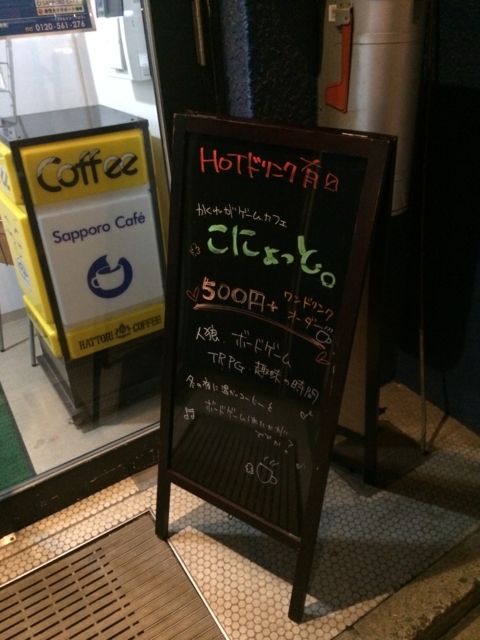 0120-561-276
Coffee
Sapporo Café
HATTORI COFFEE
HOTドリンク有
かくれがゲームカフェ
こにょっと。
500円+ ワンドリンク
オーダー
人狼 ボードゲーム
TRPG 趣味の時間
冬の夜に温かコーヒーと
ボードゲームはいかが